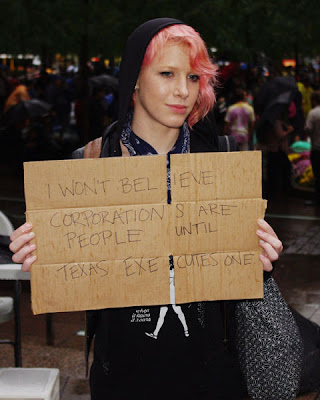 I WON'T BELIEVE
CORPORATIONS ARE
PEOPLE UNTIL
TEXAS EXECUTES ONE